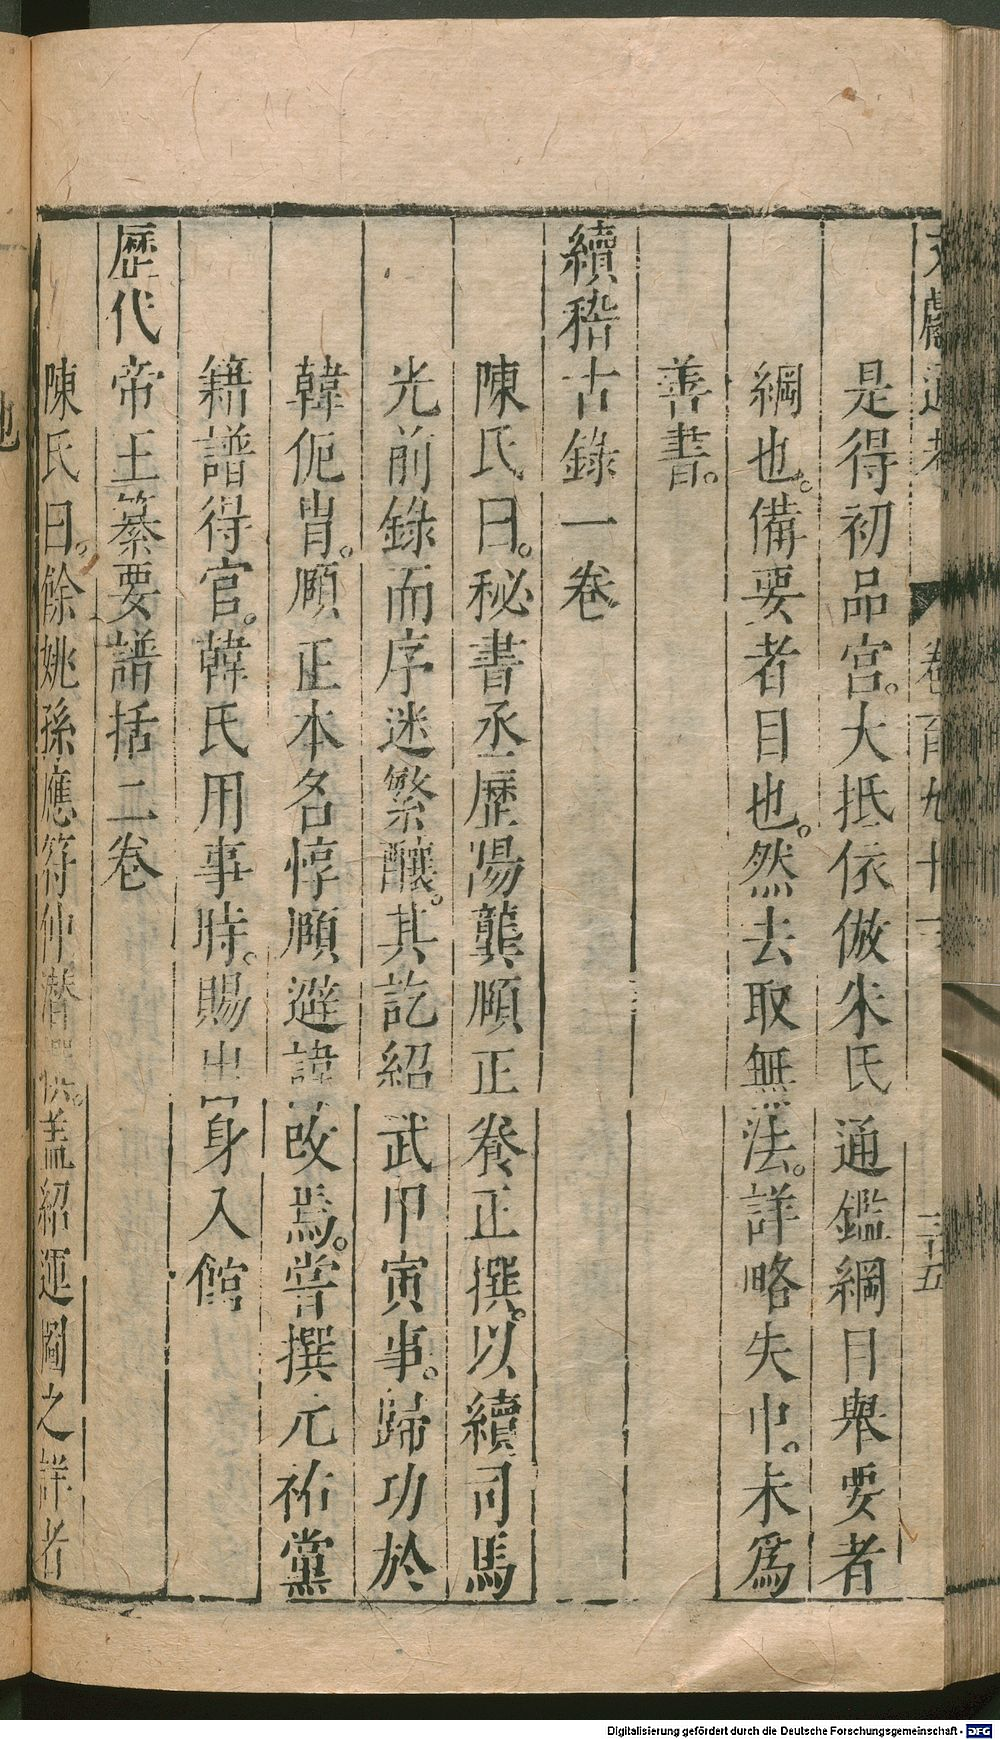 文獻通考 卷百九十三 三十五
是得初品宫。大抵依倣朱氏通鑑綱目舉要者
綱也。備要者目也。然去取無法。詳略失中。未爲
善書。
續稽古錄一卷
陳氏曰。秘書丞歷陽龔頤正養正撰。以續司馬
光前錄而序迷繁釀。其訖紹武甲寅事。歸功於
韓侂胄。頤正本名惇頤避諱改焉。嘗撰元祐黨
籍譜得官。韓氏用事時。賜出身入館
歷代帝王纂要譜括二卷
陳氏曰。餘姚孫應符仲潛撰。盖紹運圖之詳者
Digitalisierung gefördert durch die Deutsche Forschungsgemeinschaft - DFG